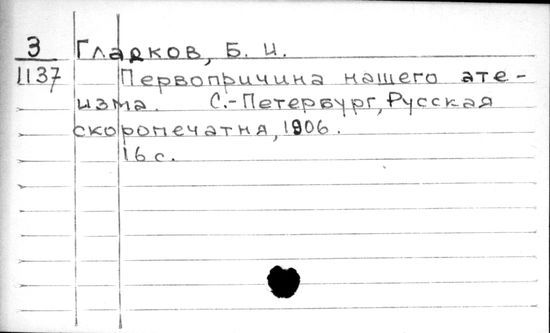 З Гладков, Б. И.
1137 Первопричина нашего ате-
изма. С.-Петербург, Русская
скоропечатня, 1906.
16 с.